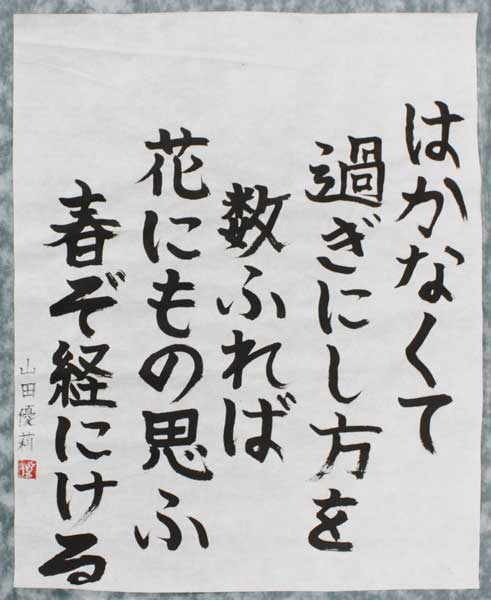 はかなくて
過ぎにし方を
数ふれば
花にもの思ふ
春ぞ経にける
山田優莉